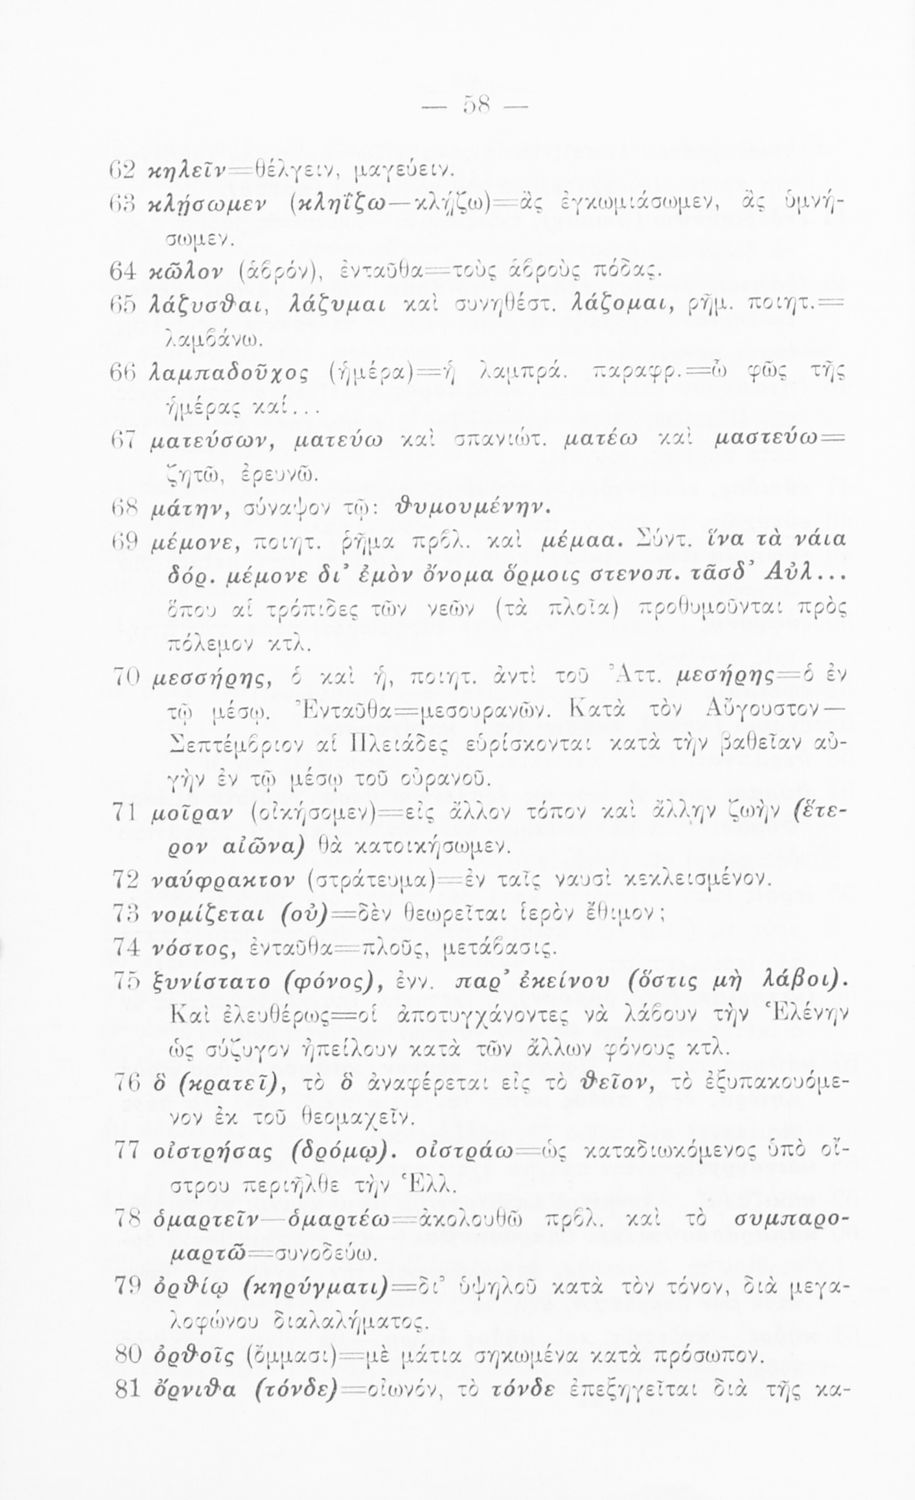 — 58 —
62 κηλεῖν=θέλγειν, μαγεύειν.
63 κλῄσωμεν (κληΐζω—κλῄζω)=ἂς ἐγκωμιάσωμεν, ἂς ὑμνή-
σωμεν.
64 κῶλον (ἁβρόν), ἐνταῦθα=τοὺς ἁβροὺς πόδας.
65 λάζυσθαι, λάζυμαι καὶ συνηθέστ. λάζομαι, ρῆμ. ποιητ.=
λαμβάνω.
66 λαμπαδοῦχος (ἡμέρα)=ἡ λαμπρά. παραφρ.=ὦ φῶς τῆς
ἡμέρας καί...
67 ματεύσων, ματεύω καὶ σπανιώτ. ματέω καὶ μαστεύω=
ζητῶ, ἐρευνῶ.
68 μάτην, σύναψον τῷ: θυμουμένην.
69 μέμονε, ποιητ. ῥῆμα πρβλ. καὶ μέμαα. Σύντ. ἵνα τὰ νάια
δόρ. μέμονε δι' ἐμὸν ὄνομα ὅρμοις στενοπ. τᾶσδ' Αὐλ...
ὅπου αἱ τρόπιδες τῶν νεῶν (τὰ πλοῖα) προθυμοῦνται πρὸς
πόλεμον κτλ.
70 μεσσήρης, ὁ καὶ ἡ, ποιητ. ἀντὶ τοῦ Ἀττ. μεσήρης=ὁ ἐν
τῷ μέσῳ. Ἐνταῦθα=μεσουρανῶν. Κατὰ τὸν Αὔγουστον—
Σεπτέμβριον αἱ Πλειάδες εὑρίσκονται κατὰ τὴν βαθεῖαν αὐ-
γὴν ἐν τῷ μέσῳ τοῦ οὐρανοῦ.
71 μοῖραν (οἰκήσομεν)=εἰς ἄλλον τόπον καὶ ἄλλην ζωὴν (ἕτε-
ρον αἰῶνα) θὰ κατοικήσωμεν.
72 ναύφρακτον (στράτευμα)=ἐν ταῖς ναυσὶ κεκλεισμένον.
73 νομίζεται (οὐ)=δὲν θεωρεῖται ἱερὸν ἔθιμον;
74 νόστος, ἐνταῦθα=πλοῦς, μετάβασις.
75 ξυνίστατο (φόνος), ἐνν. παρ' ἐκείνου (ὅστις μὴ λάβοι).
Καὶ ἐλευθέρως=οἱ ἀποτυγχάνοντες νὰ λάβουν τὴν Ἑλένην
ὡς σύζυγον ἠπείλουν κατὰ τῶν ἄλλων φόνους κτλ.
76 ὃ (κρατεῖ), τὸ ὃ ἀναφέρεται εἰς τὸ θεῖον, τὸ ἐξυπακουόμε-
νον ἐκ τοῦ θεομαχεῖν.
77 οἰστρήσας (δρόμῳ). οἰστράω=ὡς καταδιωκόμενος ὑπὸ οἴ-
στρου περιῆλθε τὴν Ἑλλ.
78 ὁμαρτεῖν—ὁμαρτέω=ἀκολουθῶ πρβλ. καὶ τὸ συμπαρο-
μαρτῶ=συνοδεύω.
79 ὀρθίῳ (κηρύγματι)=δι' ὑψηλοῦ κατὰ τὸν τόνον, διὰ μεγα-
λοφώνου διαλαλήματος.
80 ὀρθοῖς (ὄμμασι)=μὲ μάτια σηκωμένα κατὰ πρόσωπον.
81 ὄρνιθα (τόνδε)=οἰωνόν, τὸ τόνδε ἐπεξηγεῖται διὰ τῆς κα-